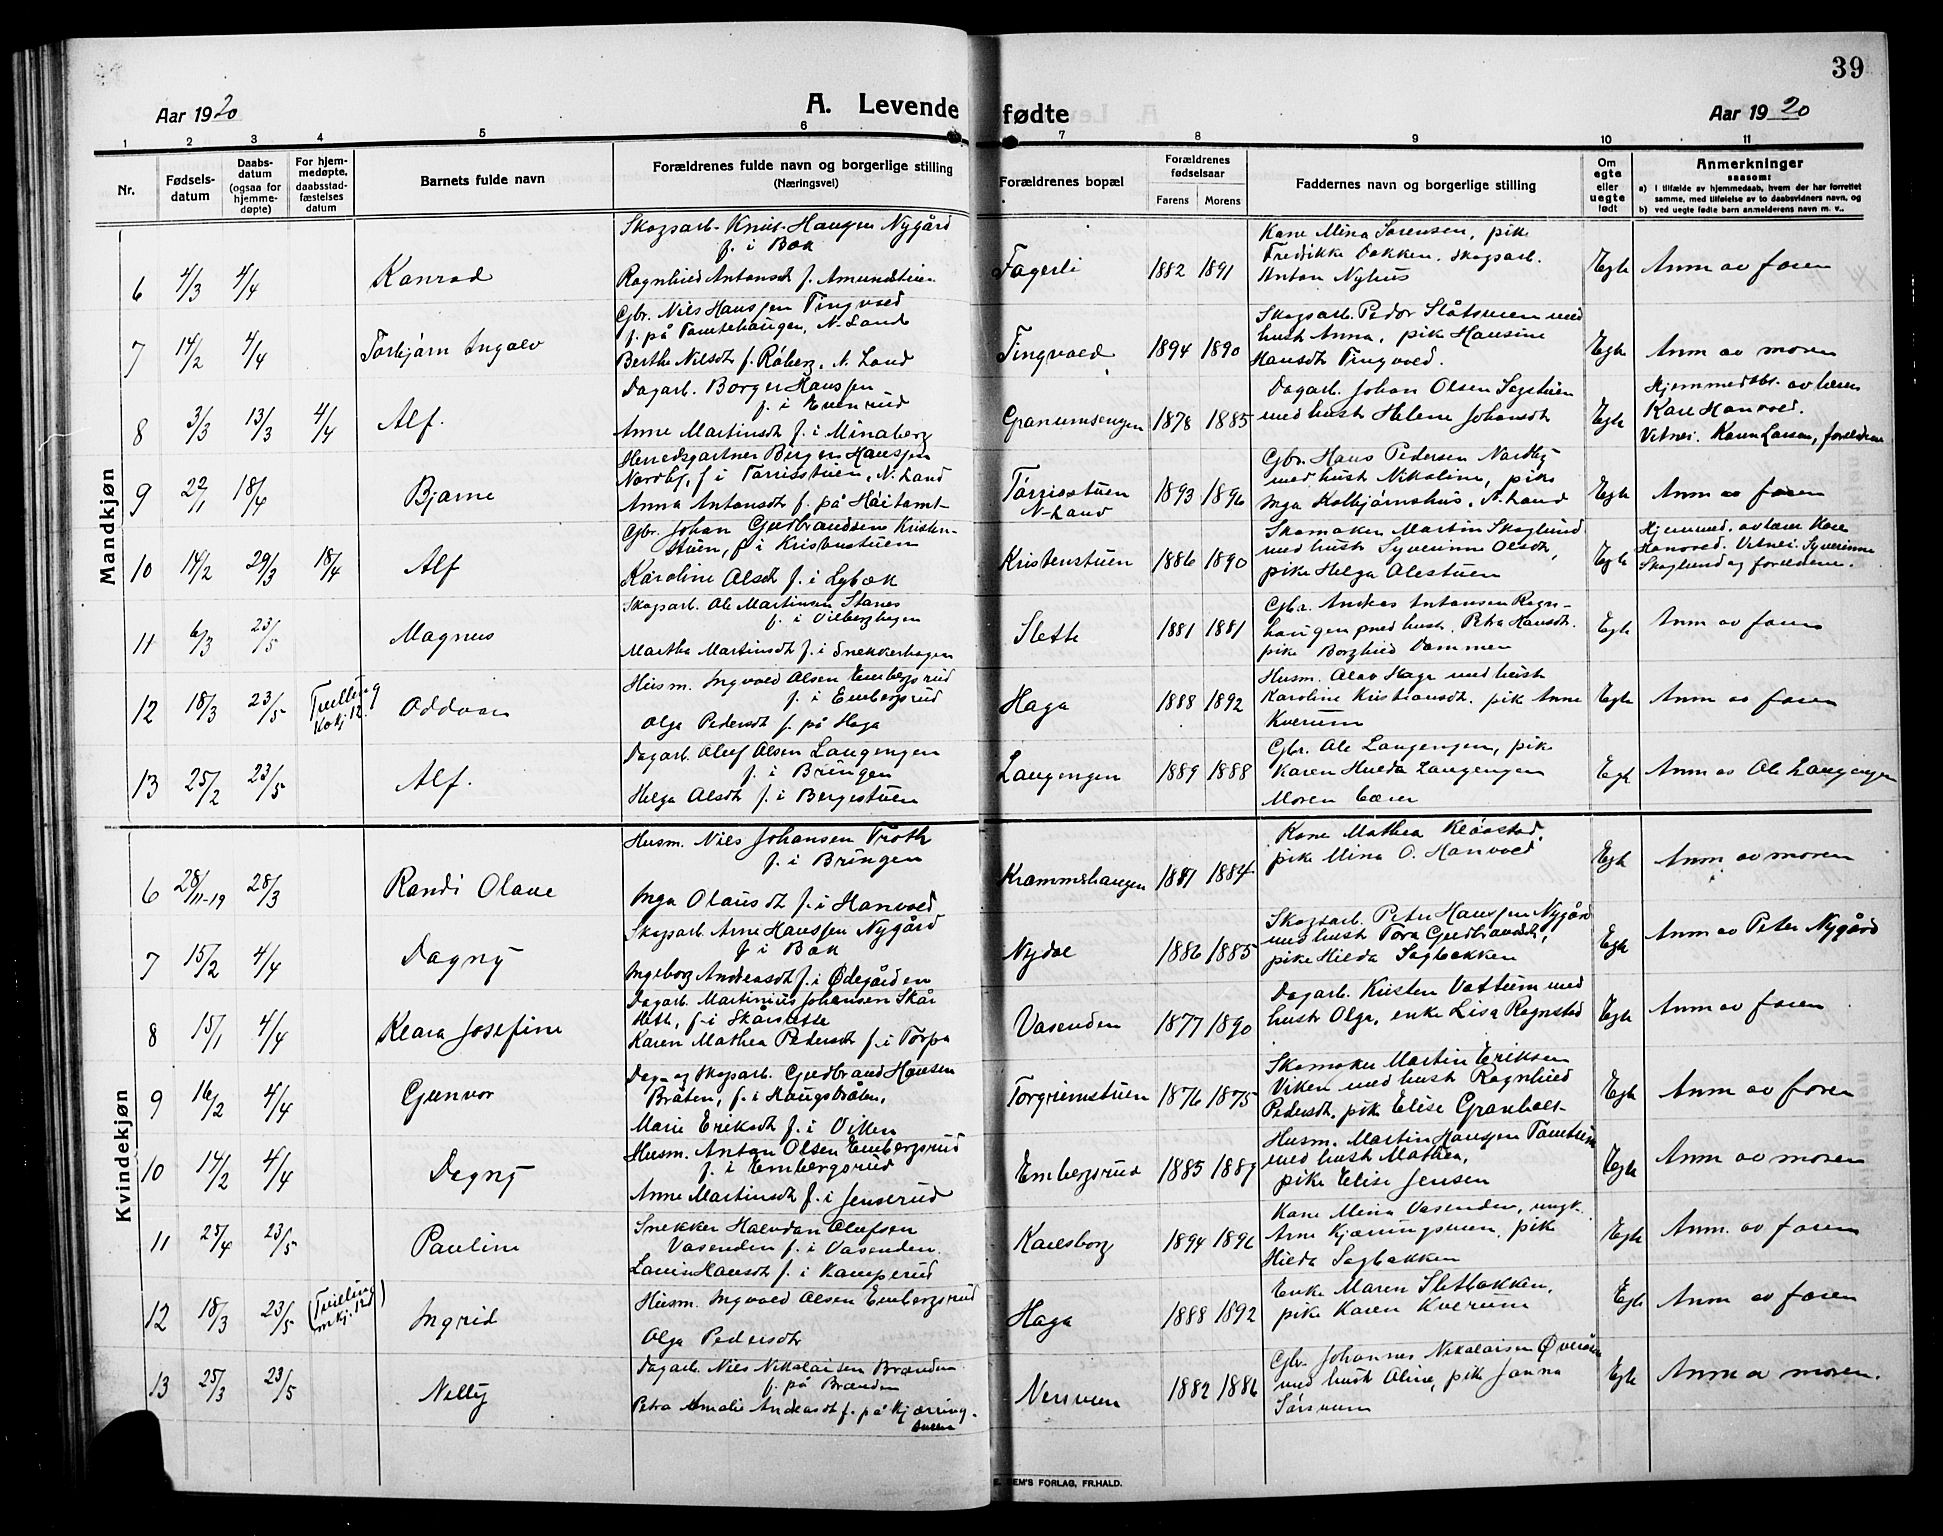 39
Aar 1920
A. Levende fødte
Aar 1920
1 2 3 4 5 6 7 8 9 10 11
Nr.
Fødsels-
datum
Daabs-
datum
(ogsaa for
hjemme-
døpte)
For hjem-
medøpte,
daabsstad-
fæstelses
datum
Barnets fulde navn
Forældrenes fulde navn og borgerlige stilling
(Næringsvei)
Forældrenes bopæl
Forældrenes
fødselsaar
Farens Morens
Faddernes navn og borgerlige stilling
Om
egte
eller
uegte
født
Anmerkninger
saasom:
a) i tilfælde av hjemmedaab, hvem der har forrettet
samme, med tilføielse av to daabsvidners navn, og
b) ved uegte fødte barn anmelderens navn m. v..
Mandkjøn
6 4/3 4/4 Konrad
Skogsarb. Knut Hansen Nygård
f. i Bak
Ragnhild Antonsdt f. Amundstuen
Fagerli 1882 1891
Kone Mina Sørensen, pike
Fredikke Dokken, skogsarb.
Anton Nyhus
Egte Anm av faren
7 14/2 4/4 Torbjørn Ingolv
Gbr. Nils Hanssen Tingvold
f. på Tomtehaugen, N. Land
Berthe Nilsdt f. Røberg, N. Land
Tingvold 1894 1890
Skogsarb. Peder Slåtsveen med
hust Anna, pike Hansine
Hansdt Tingvold.
Egte Anm av moren
8 3/3 13/3 4/4 Alf.
Dagarb. Borger Hanssen
f. i Evenrud
Anne Martinsdt f. i Minaberg
Granumsengen 1878 1885
Dagarb. Johan Olsen Sagstuen
med hust Helene Johansdt
Egte
Hjemmedøbt. av lærer
Kåre Hanvold.
Vitnei. Karen Larsen, foreldrene
9 22/1 18/4 Bjarne
Herredsgartner Berger Hanssen
Nordby, f. i Tørrisstuen, N. Land
Anna Antonsdt f. på Høitomt
Tørrisstuen
N-Land
1893 1896
Gbr. Hans Pedersen Nordby
med hust Nikoline, pike
Inga Kolbjørnshus, N. Land
Egte Anm av faren
10 14/2 29/3 18/4 Alf
Gbr. Johan Gudbrandsen Kristen-
stuen, f. i Kristenstuen
Karoline Olsdt f. i Lybæk
Kristenstuen 1886 1890
Skomaker Martin Skoglund
med hust Syverinne Olsdt,
pike Helga Olestuen
Egte
Hjemmed. av lærer Kåre
Hanvold. Vitnei. Syverinne
Skoglund og foreldrene.
11 6/3 23/5 Magnus
Skogsarb. Ole Martinsen Stanes
f. i Vilberghagen
Martha Martinsdt f. i Snekkerhagen
Slette 1881 1881
Gbr. Andreas Antonsen Rogn-
haugen med hust. Petra Hansdt.
pike Borghild Dammen
Egte Anm av faren
12 18/3 23/5 Tvilling
Kvkj 12. Oddvar
Husm. Ingvald Olsen Embergsrud
f. i Embergsrud
Olga Pedersdt f. på Haga
Haga 1888 1892
Husm. Olav Haga med hust
Karoline Kristiansdt. pik Anne
Kverum
Egte Anm av faren
13 25/2 23/5 Alf.
Dagarb. Oluf Olsen Laugengen
f. i Bringen
Helga Olsdt f. i Bergestuen
Laugengen 1889 1888
Gbr. Ole Laugengen, pik
Karen Hulda Laugengen
Moren bærer
Egte Anm av Ole Laugengen
Kvindekjøn
6 28/11-19 28/3 Randi Olave
Husm. Nils Johansen Troth
f. i Bringen
Inga Olausdt f. i Hanvold
Krammshaugen 1881 1884
Kone Mathea Kløvstad,
pike Mina O. Hanvold
Egte Anm av moren
7 15/2 4/4 Dagny
Skogsarb. Arne Hanssen Nygård
f. i Bak
Ingeborg Andreasdt f. i Ødegården
Nydal 1886 1885
Skogsarb. Peter Hanssen Nygård
med hust Tora Gudbrandsdt,
pike Hilda Sagbakken
Egte Anm av Peter Nygård
8 15/1 4/4 Klara Josefine
Dagarb. Martinius Johansen Skår
slette, f. i Skårslette
Karen Mathea Pedersdt f. i Torpa
Vasenden 1877 1890
Dagarb. Kristen Vattum med
hust Olga, enke Lisa Rognstad
Egte Anm av faren
9 16/2 4/4 Gunvor
Dag- og skogsarb. Gudbrand Hansen
Bråten, f. i Haugsbråten,
Marie Eriksdt f. i Viken
Torgrimstuen 1876 1875
Skomaker Martin Eriksen
Viken med hust Ragnhild
Pedersdt. pik Elise Granholt
Egte Anm av faren
10 14/2 4/4 Dagny
Husm. Anton Olsen Embergsrud
f. i Embergsrud
Anne Martinsdt f. i Jenserud
Embergsrud 1885 1889
Husm. Martin Hanssen Tomtum
med hust Mathea,
pike Elise Jensen
Egte Anm av moren
11 25/4 23/5 Pauline
Snekker Halvdan Olufsen
Vasenden f. i Vasenden.
Lovise Hansdt f. i Kamperud
Karlsborg 1894 1896
Kone Mina Vasenden, ungk.
Arne Kjæringsveen, pik
Hilda Sagbakken
Egte Anm. av faren
12 18/3 23/5 (Tvilling
m.kj. 12) Ingrid
Husm. Ingvald Olsen Embergsrud
Olga Pedersdt
Haga 1888 1892
Enke Maren Sletbakken,
pike Karen Kverum
Egte Anm av faren
13 25/3 23/5 Nelly
Dagarb. Nils Nikolaisen Brænden
f. på Brænden
Petra Amalie Andersdt f. på Kjæring-
sveen
Nerveen 1882 1886
Gbr. Johannes Nikolaisen Øveråsen
med hust Aline, pik Janna
Sørsveen
Egte Anm av moren.
E. SEM'S FORLAG, FR.HALD.